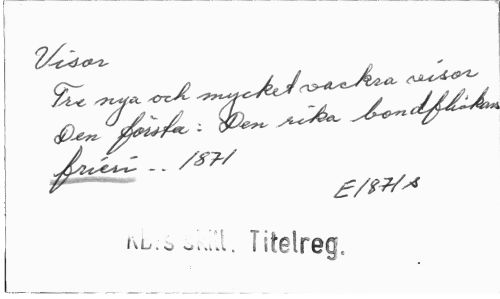 Visor
Tre nya och mycket vackra visor
Den första: Den rika bondflickans
frieri .. 1871
E1871s
KB:s skill. Titelreg.